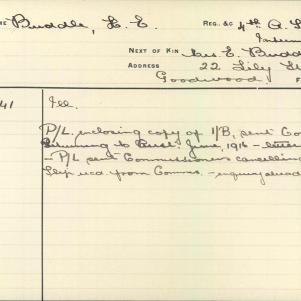 ME Buddle, L. E. REG. &C 4th A. L
NEXT OF KIN Mrs E. Budd
ADDRESS 22 Lily St
Goodwood. F
41 Ill.
P/L enclosing copy of 1/B, sent Co
returning to Aust. June, 1916 - letter
- P/L sent Commissioners cancelling
Slip recd from Comms. - enquiry alread